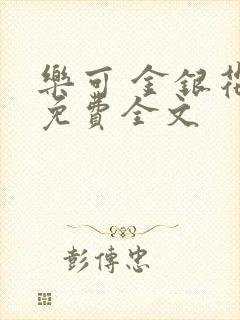 樂可 金銀花
免費全文
彭傳忠